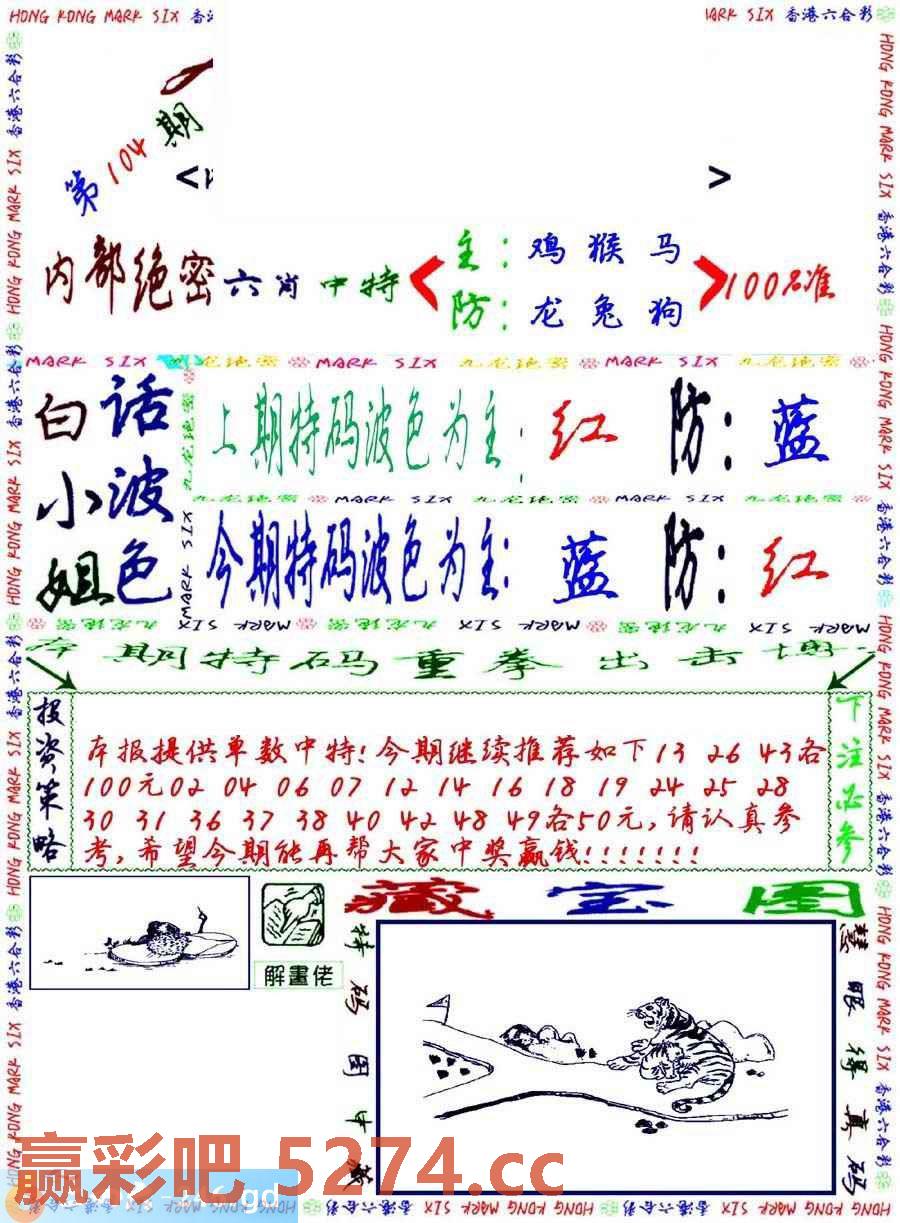 HONG KONG MARK SIX 香港六合彩
MARK SIX 香港六合彩
第104期
内部绝密六肖中特
主：鸡猴马
防：龙兔狗
100%准
MARK SIX 九龙地密 MARK SIX 九龙地密 MARK SIX 九龙地密
白话小波姐色
上期特码波色为主：红 防：蓝
九龙地密 MARK SIX 九龙地密 MARK SIX 九龙地密
今期特码波色为主：蓝 防：红
MARK SIX 九龙地密 MARK SIX 九龙地密 MARK SIX
期特码重拳出击
投资策略
本报提供单数中特！今期继续推荐如下13 26 43各
100元02 04 06 07 12 14 16 18 19 24 25 28
30 31 36 37 38 40 42 48 49各50元，请认真参
考，希望今期能再帮大家中奖赢钱！！！！！！！
下注必参
藏宝图
解畫佬
特码图中藏
慧眼得真码
赢彩吧 5274.cc
HONG KONG MARK SIX 香港六合彩